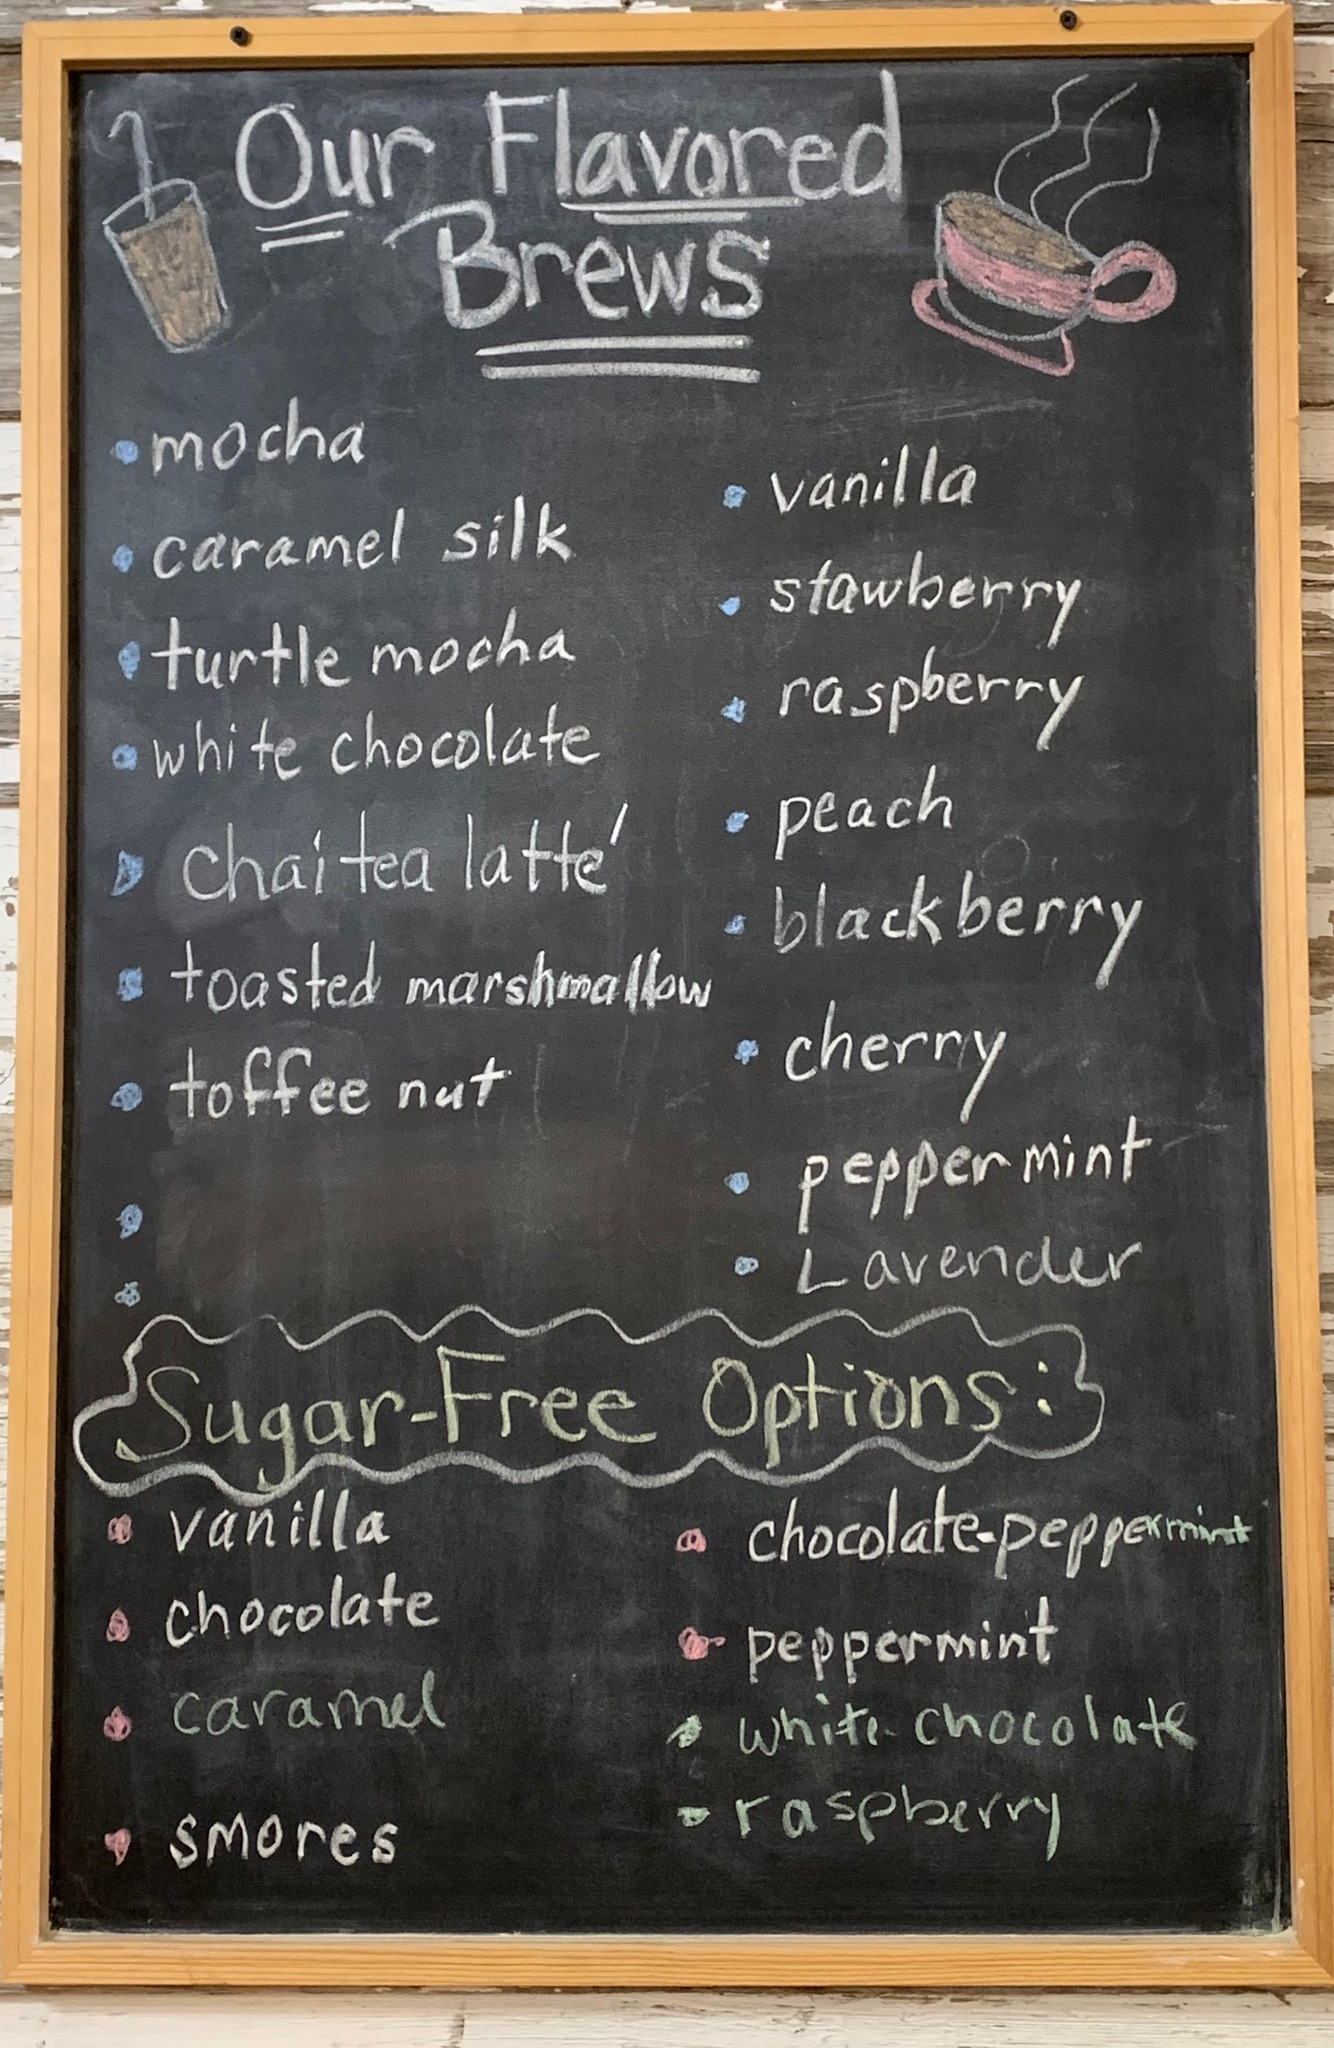 Our Flavored
Brews
mocha
caramel silk
turtle mocha
white chocolate
chai tea latté
toasted marshmallow
toffee nut
vanilla
stawberry
raspberry
peach
blackberry
cherry
peppermint
Lavender
Sugar-Free Options:
vanilla
chocolate
caramel
smores
chocolate-peppermint
peppermint
white chocolate
raspberry